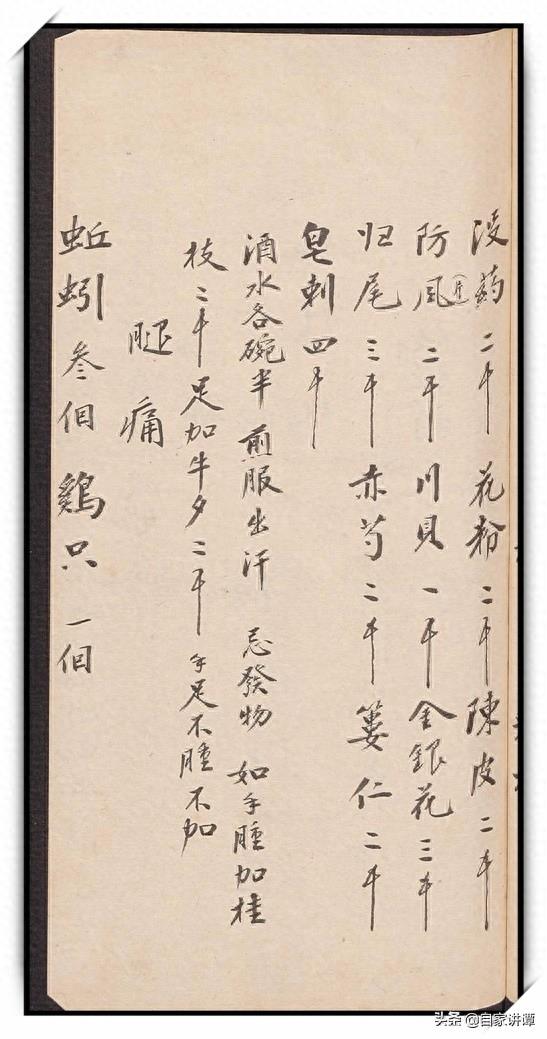 没葯二千 花粉二千 陳皮二千
防風二千 川貝一千 金銀花三千
归尾三千 赤芍二千 蔞仁二千
皂刺四千
酒水各碗半 煎服出汗 忌發物 如手腫加桂
枝二千 足加牛夕二千 手足不腫不加
腿痛
蚯蚓叁個 鷄只一個
头条 @自家讲谭